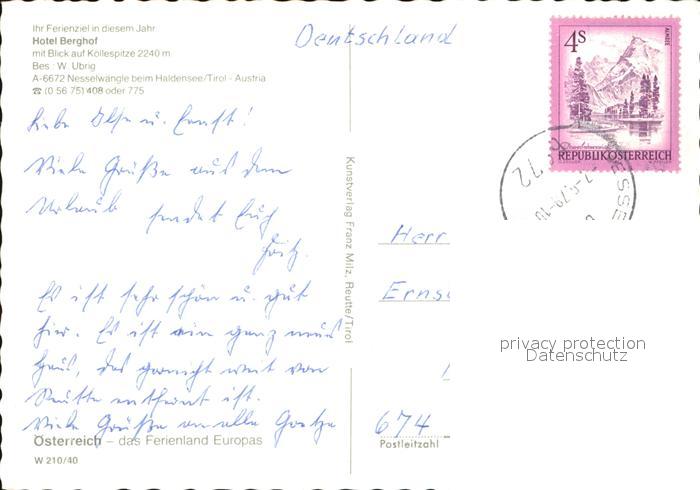 Ihr Ferienziel in diesem Jahr
Hotel Berghof
mit Blick auf Köllespitze 2240 m
Bes.: W. Ubrig
A-6672 Nesselwängle beim Haldensee/Tirol - Austria
☎ (0 56 75) 408 oder 775
Liebe Ilse u. Ernst!
Viele Grüße aus dem
Urlaub sendet Euch
Fritz.
Es ist sehr schön u. gut
hier. Es ist ein ganz neues
Haus, das garnicht weit von
Reutte entfernt ist.
Viele Grüße an alle
Österreich – das Ferienland Europas
W 210/40
Kunstverlag Franz Milz, Reutte/Tirol
Deutschland
4s
ALMSEE
REPUBLIK ÖSTERREICH
72
NESSE
Herr
Erns
674
Postleitzahl
privacy protection
Datenschutz